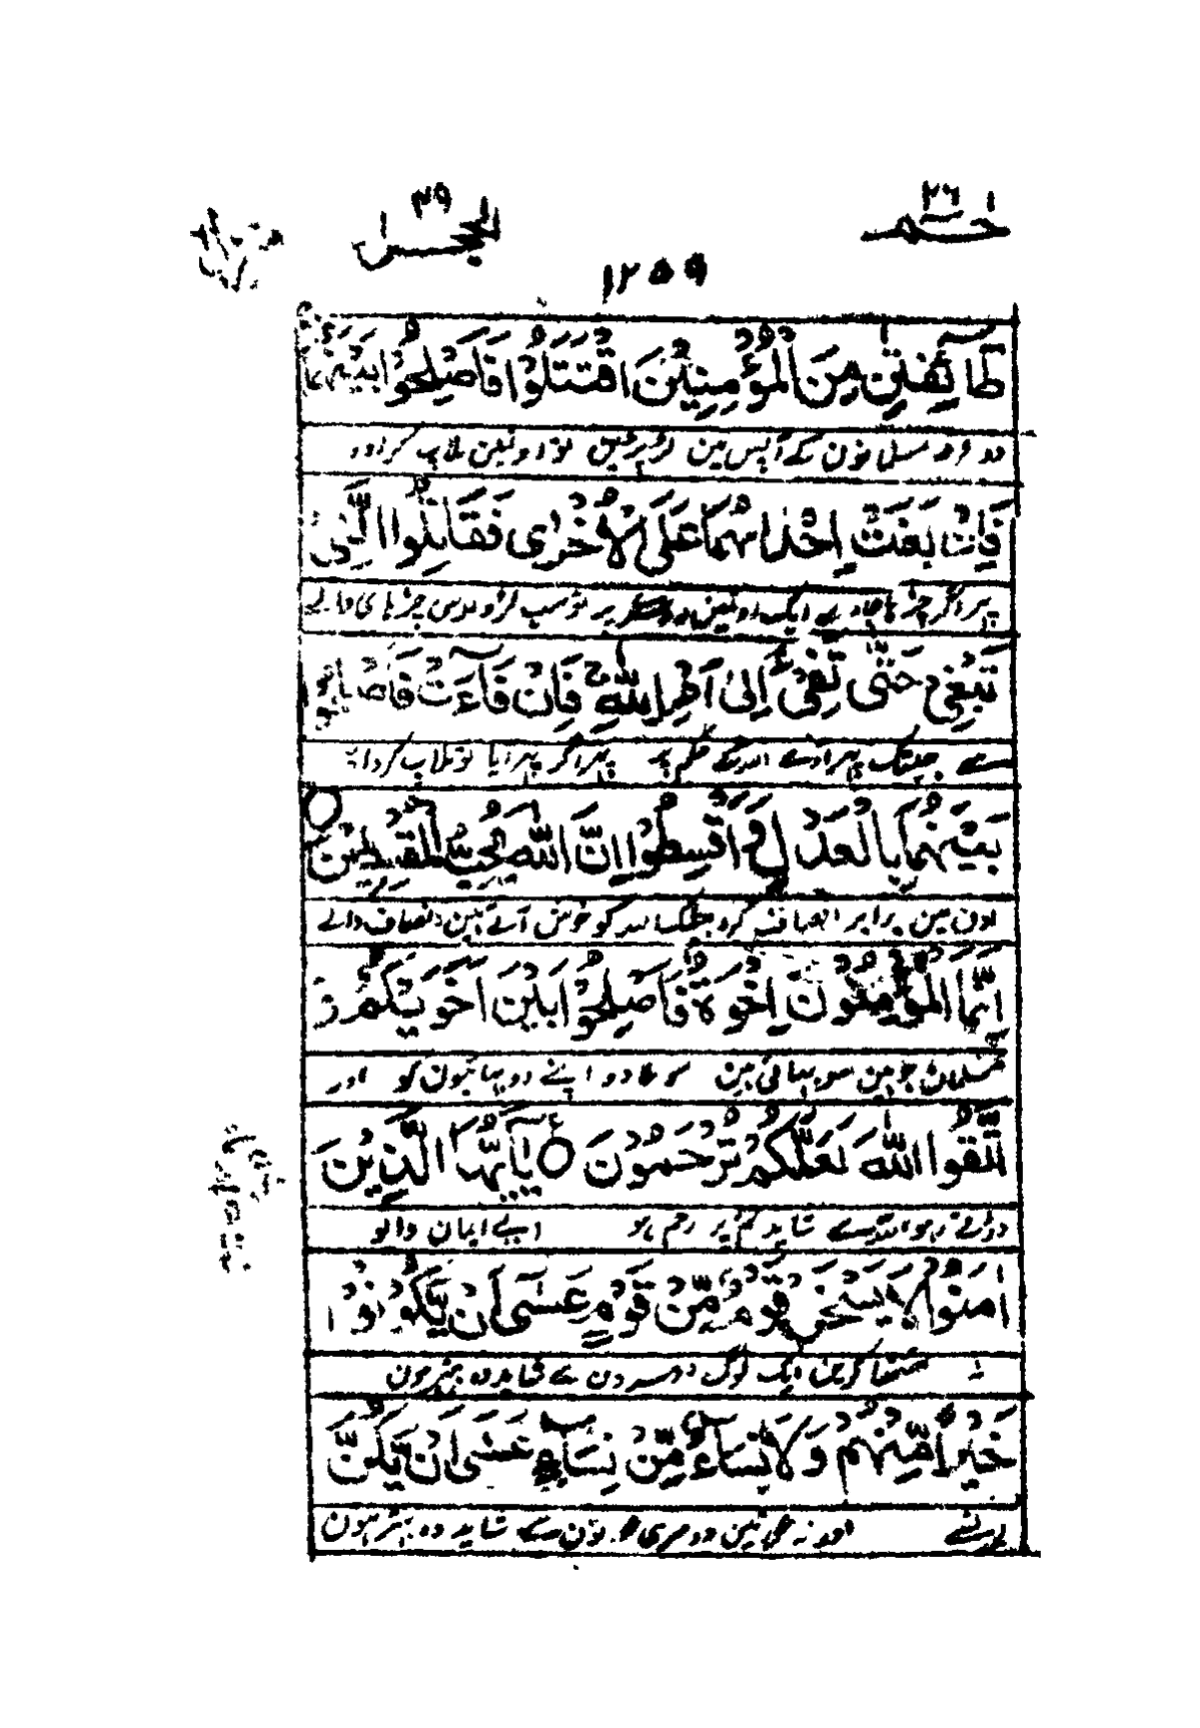 حٰم ٢٦
الحجرات ٤٩
١٢٥٩
طَآئِفَتٰنِ مِنَ الْمُؤْمِنِيْنَ اقْتَتَلُوْا فَاَصْلِحُوْا بَيْنَهُمَا
مسلمانون کے آپس مین لڑ پڑین تو اونمین ملاپ کرادو
فَاِنْ بَغَتْ اِحْدٰىهُمَا عَلَى الْاُخْرٰى فَقَاتِلُوا الَّتِىْ
پہر اگر چڑھا جاوے ایک اونمین پر تو سب لڑو اوس چڑھائی والے
تَبْغِىْ حَتّٰى تَفِىْٓءَ اِلٰٓى اَمْرِ اللّٰهِ ۚ فَاِنْ فَآءَتْ فَاَصْلِحُوْا
سے جبتک پہر آوے اللہ کے حکم پر پہر اگر پہر آیا تو ملاپ کروا
بَيْنَهُمَا بِالْعَدْلِ وَاَقْسِطُوْا ؕ اِنَّ اللّٰهَ يُحِبُّ الْمُقْسِطِيْنَ ○
اون مین برابر اور انصاف کرو بیشک اللہ کو خوش آتے ہین انصاف والے
اِنَّمَا الْمُؤْمِنُوْنَ اِخْوَةٌ فَاَصْلِحُوْا بَيْنَ اَخَوَيْكُمْ وَ
مسلمان جو ہین سو بہائی ہین سو ملا دو اپنے دو بہائیون کو اور
اتَّقُوا اللّٰهَ لَعَلَّكُمْ تُرْحَمُوْنَ ○ يٰٓاَيُّهَا الَّذِيْنَ
ڈرتے رہو اللہ سے شاید تم پر رحم ہو اے ایمان والو
اٰمَنُوْا لَا يَسْخَرْ قَوْمٌ مِّنْ قَوْمٍ عَسٰٓى اَنْ يَّكُوْنُوْا
نہ ٹھٹھا کرین ایک لوگ دوسرون سے شاید وہ بہتر ہون
خَيْرًا مِّنْهُمْ وَلَا نِسَآءٌ مِّنْ نِّسَآءٍ عَسٰٓى اَنْ يَّكُنَّ
اور نہ عورتین دوسری عورتون سے شاید وہ بہتر ہون